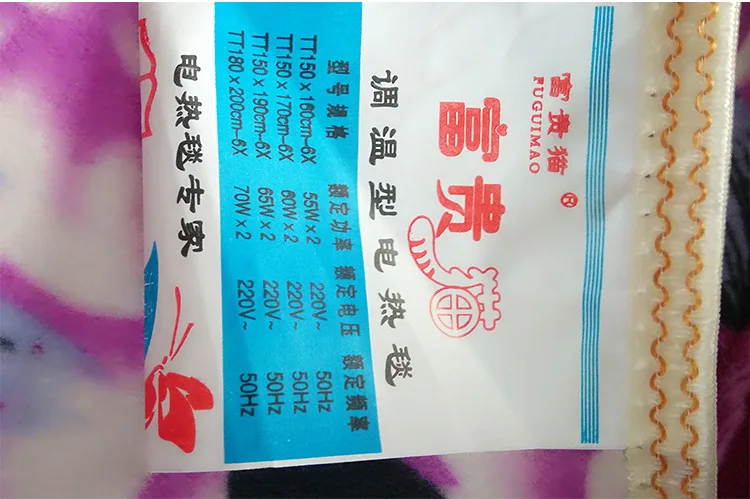 富贵猫®
FUGUIMAO
富贵猫
调温型电热毯
型号规格 额定功率 额定电压 额定频率
TT150×160cm-6X 55W×2 220V~ 50Hz
TT150×170cm-6X 60W×2 220V~ 50Hz
TT150×190cm-6X 65W×2 220V~ 50Hz
TT180×200cm-6X 70W×2 220V~ 50Hz
电热毯专家